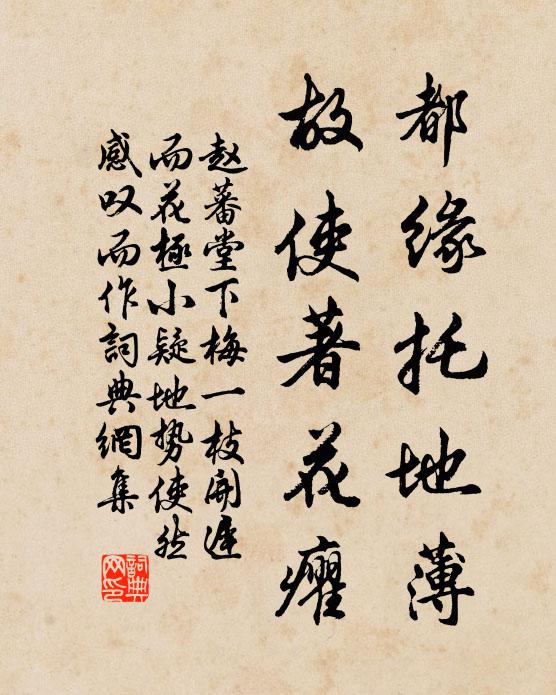 都缘托地薄
故使著花癯
赵蕃堂下梅一枝开迟
而花極小疑地势使然
感叹而作詞典網集
詞典网印